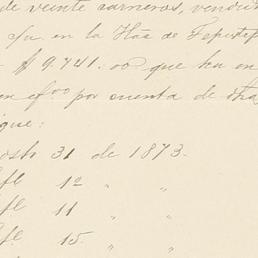 de veinte carneros, vendid
fu en la Hda de Tepustep
$9.741.00 que ha en
en efvo por cuenta de dha
igue:
osto 31 de 1873.
fl 12 " "
fl 11 " "
fl 15. " "